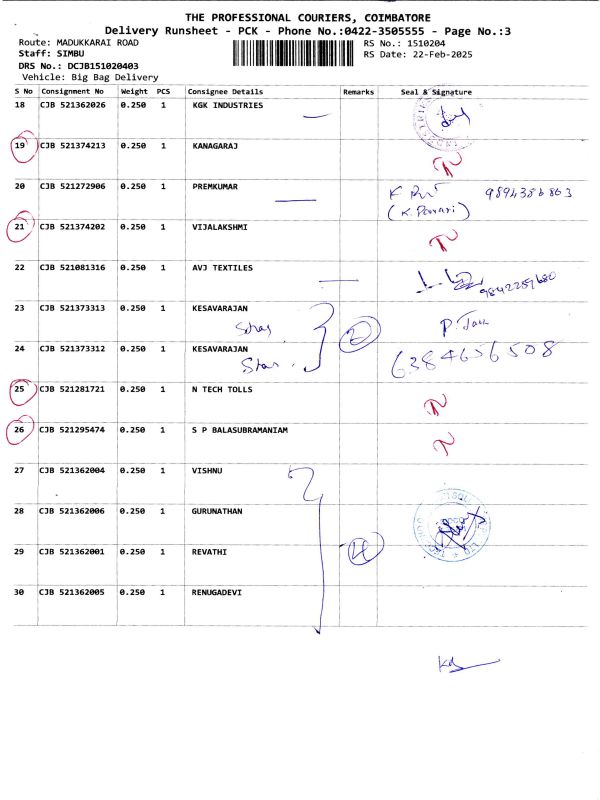 THE PROFESSIONAL COURIERS, COIMBATORE
Delivery Runsheet - PCK - Phone No.:0422-3505555 - Page No.:3
Route: MADUKKARAI ROAD RS No.: 1510204
Staff: SIMBU RS Date: 22-Feb-2025
DRS No.: DCJB151020403
Vehicle: Big Bag Delivery
S No Consignment No Weight PCS Consignee Details Remarks Seal & Signature
18 CJB 521362026 0.250 1 KGK INDUSTRIES
19 CJB 521374213 0.250 1 KANAGARAJ
20 CJB 521272906 0.250 1 PREMKUMAR
9894386863
21 CJB 521374202 0.250 1 VIJALAKSHMI
22 CJB 521081316 0.250 1 AVJ TEXTILES
23 CJB 521373313 0.250 1 KESAVARAJAN
2
24 CJB 521373312 0.250 1 KESAVARAJAN 6384656508
25 CJB 521281721 0.250 1 N TECH TOLLS
26 CJB 521295474 0.250 1 S P BALASUBRAMANIAM
27 CJB 521362004 0.250 1 VISHNU
28 CJB 521362006 0.250 1 GURUNATHAN
29 CJB 521362001 0.250 1 REVATHI 4
30 CJB 521362005 0.250 1 RENUGADEVI